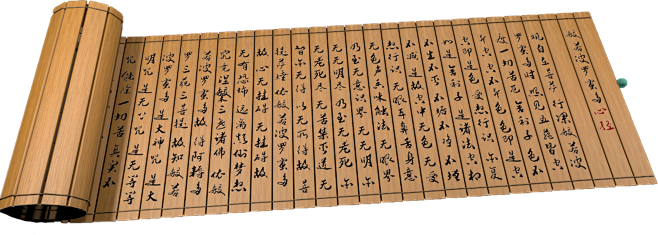 般若波罗蜜多心经
观自在菩萨行深般若波
罗蜜多时照见五蕴皆空
度一切苦厄舍利子色不
异空空不异色色即是空
空即是色受想行识亦复
如是舍利子是诸法空相
不生不灭不垢不净不增
不减是故空中无色无受
想行识无眼耳鼻舌身意
无色声香味触法无眼界
乃至无意识界无无明亦
无无明尽乃至无老死亦
无老死尽无苦集灭道无
智亦无得以无所得故菩
提萨埵依般若波罗蜜多
故心无挂碍无挂碍故
无有恐怖远离颠倒梦想
究竟涅槃三世诸佛依般
若波罗蜜多故得阿耨多
罗三藐三菩提故知般若
波罗蜜多是大神咒是大
明咒是无上咒是无等等
咒能除一切苦真实不